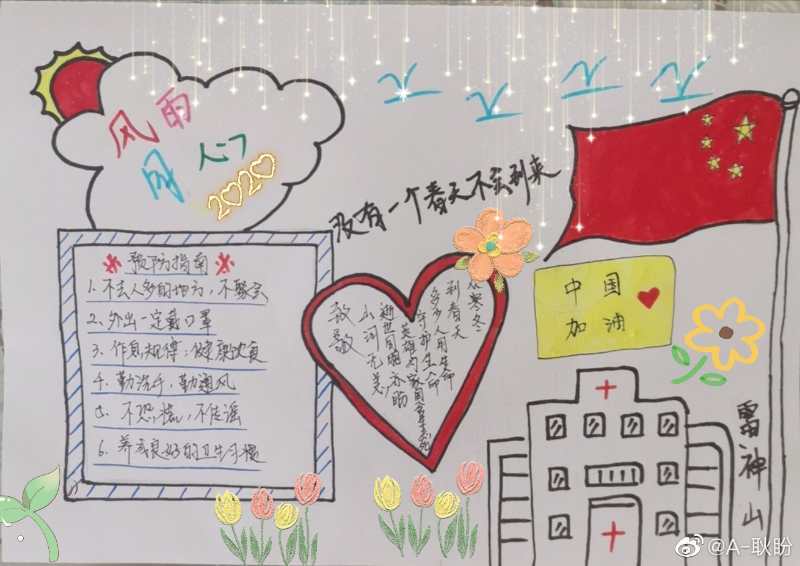 风雨
同 人门
2020
没有一个春天不会到来
预防指南
1、不去人多的地方,不聚会
2、外出一定戴口罩
3、作息规律,健康饮食
4、勤洗手,勤通风
5、不恐慌,不传谣
6、养成良好的卫生习惯
从寒冬
到春天
多少人用生命
守护生命
英雄为家国
山河无恙
致敬
中国
加油
雷神山
@A-耿盼